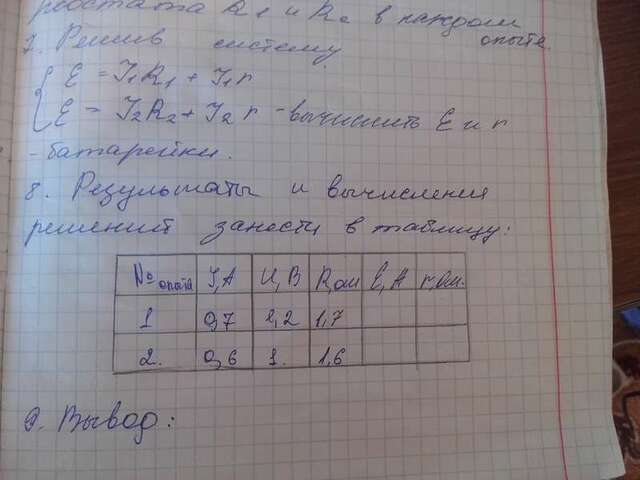 реостата R1 и R2 в каждом
опыте.
7. Решив систему
{ E = J1R1 + J1r
E = J2R2 + J2 r - вычислить E и r
- батарейки.
8. Результаты и вычисления
решений занести в таблицу:
№ опыта J,A U,B R,ом E,A r,Ом.
1 0,7 1,2 1,7
2. 0,6 1. 1,6
9. Вывод: